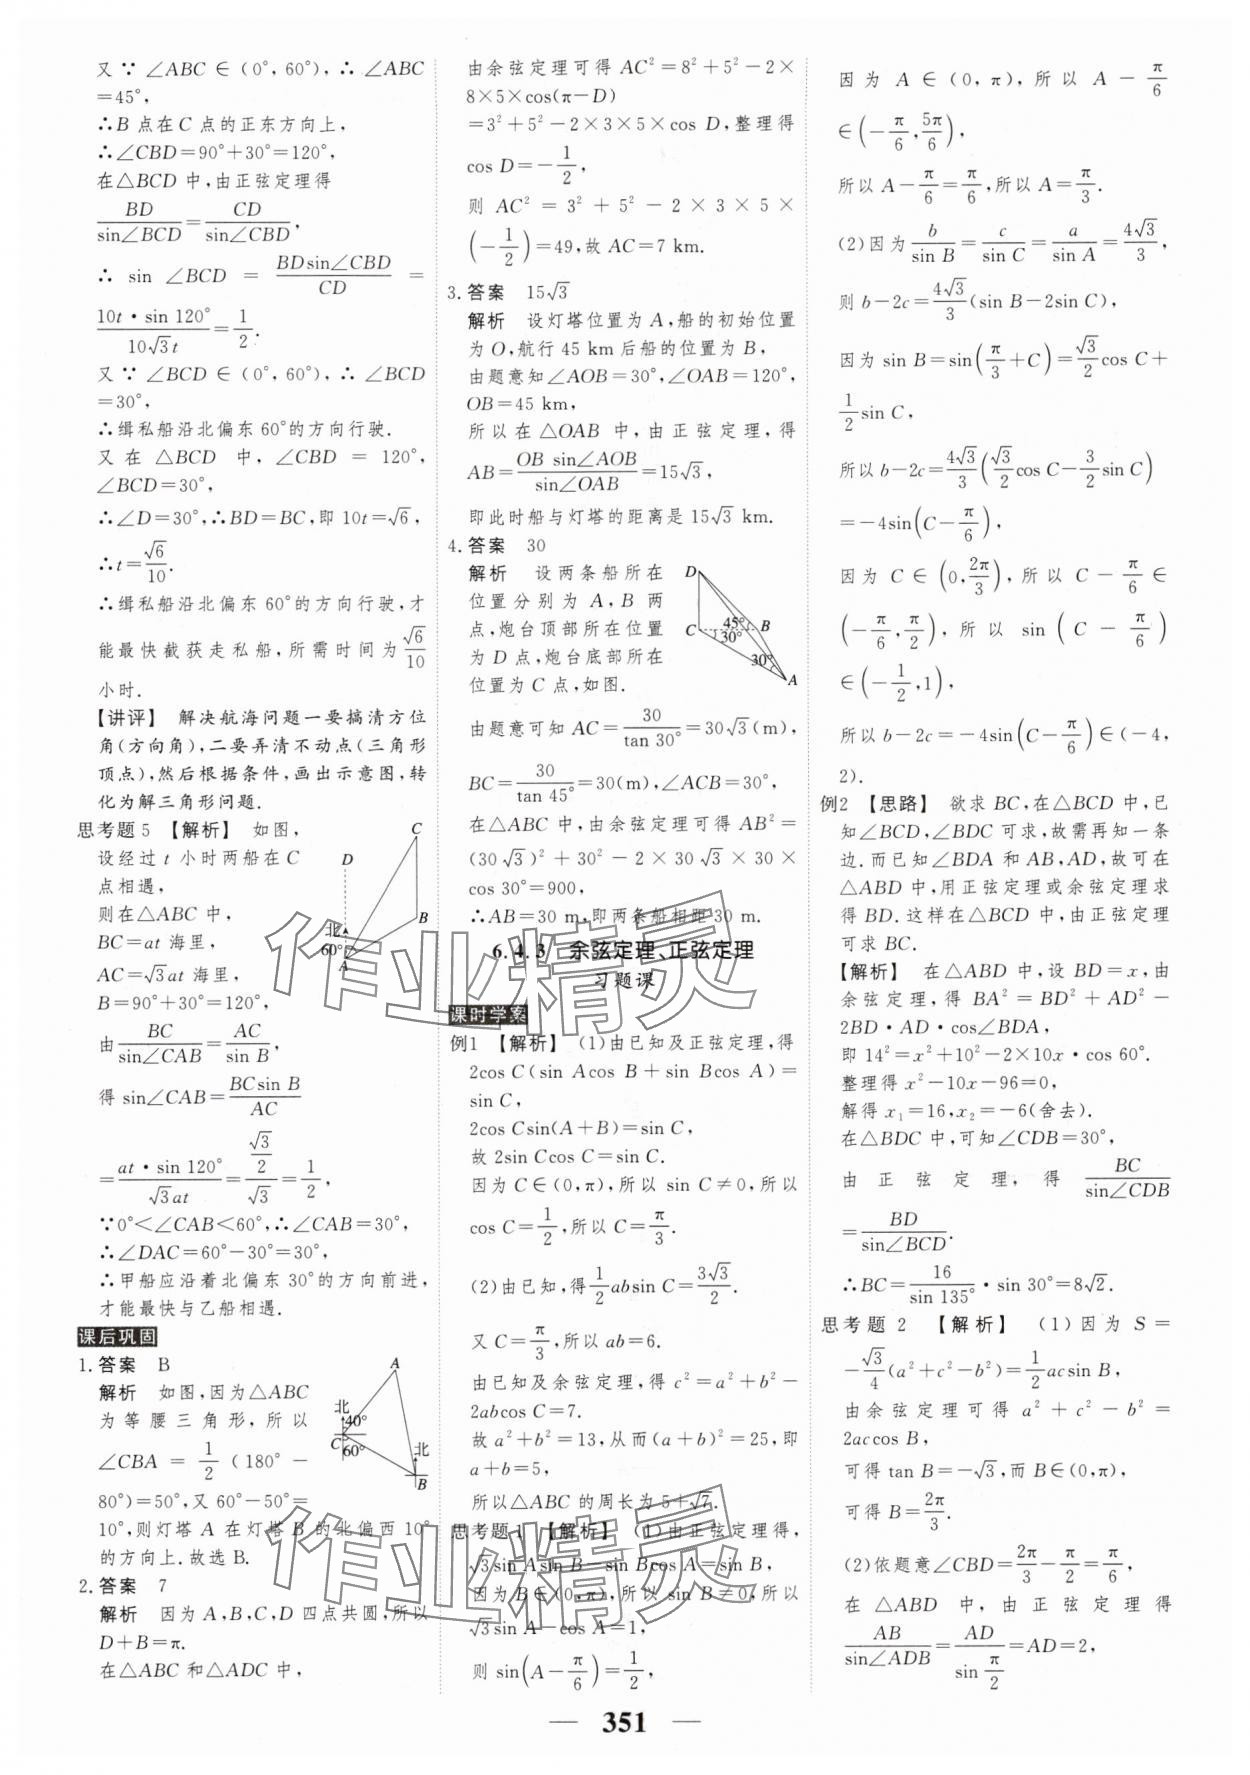 又∵∠ABC∈(0°,60°),∴∠ABC
=45°,
∴B点在C点的正东方向上,
∴∠CBD=90°+30°=120°,
在△BCD中,由正弦定理得
BD/sin∠BCD=CD/sin∠CBD,
∴ sin ∠BCD = BDsin∠CBD/CD =
10t·sin 120°/10√3t=1/2.
又∵∠BCD∈(0°,60°),∴∠BCD
=30°,
∴缉私船沿北偏东60°的方向行驶.
又在△BCD中,∠CBD=120°,
∠BCD=30°,
∴∠D=30°,∴BD=BC,即10t=√6,
∴t=√6/10.
∴缉私船沿北偏东60°的方向行驶,才
能最快截获走私船,所需时间为√6/10
小时.
【讲评】 解决航海问题一要搞清方位
角(方向角),二要弄清不动点(三角形
顶点),然后根据条件,画出示意图,转
化为解三角形问题.
思考题5 【解析】 如图,
设经过t小时两船在C
点相遇,
则在△ABC中,
BC=at海里,
AC=√3at海里,
B=90°+30°=120°,
由BC/sin∠CAB=AC/sin B,
得sin∠CAB=BCsin B/AC
=at·sin 120°/√3at=(√3/2)/√3=1/2,
∵0°<∠CAB<60°,∴∠CAB=30°,
∴∠DAC=60°-30°=30°,
∴甲船应沿着北偏东30°的方向前进,
才能最快与乙船相遇.
D
C
B
北
60°
A
课后巩固
1.答案 B
解析 如图,因为△ABC
为等腰三角形,所以
∠CBA=1/2(180°-
80°)=50°,又60°-50°=
10°,则灯塔A在灯塔B的北偏西10°
的方向上.故选B.
A
北
40°
C
60°
北
B
2.答案 7
解析 因为A,B,C,D四点共圆,所以
D+B=π.
在△ABC和△ADC中,
由余弦定理可得AC²=8²+5²-2×
8×5×cos(π-D)
=3²+5²-2×3×5×cos D,整理得
cos D=-1/2,
则 AC²=3²+5²-2×3×5×
(-1/2)=49,故AC=7 km.
3.答案 15√3
解析 设灯塔位置为A,船的初始位置
为O,航行45 km后船的位置为B,
由题意知∠AOB=30°,∠OAB=120°,
OB=45 km,
所以在△OAB中,由正弦定理,得
AB=OB sin∠AOB/sin∠OAB=15√3,
即此时船与灯塔的距离是15√3 km.
4.答案 30
解析 设两条船所在
位置分别为A,B两
点,炮台顶部所在位置
为D点,炮台底部所在
位置为C点,如图.
D
C
45°
B
30°
30°
A
由题意可知AC=30/tan 30°=30√3(m),
BC=30/tan 45°=30(m),∠ACB=30°,
在△ABC中,由余弦定理可得AB²=
(30√3)²+30²-2×30√3×30×
cos 30°=900,
∴AB=30 m,即两条船相距30 m.
6.4.3 余弦定理、正弦定理
习题课
课时学案
例1 【解析】 (1)由已知及正弦定理,得
2cos C(sin Acos B+sin Bcos A)=
sin C,
2cos Csin(A+B)=sin C,
故2sin Ccos C=sin C.
因为C∈(0,π),所以sin C≠0,所以
cos C=1/2,所以C=π/3.
(2)由已知,得1/2absin C=3√3/2.
又C=π/3,所以ab=6.
由已知及余弦定理,得c²=a²+b²-
2abcos C=7.
故a²+b²=13,从而(a+b)²=25,即
a+b=5,
所以△ABC的周长为5+√7.
思考题1 【解析】 (1)由正弦定理得,
√3sin Asin B-sin Bcos A=sin B,
因为B∈(0,π),所以sin B≠0,所以
√3sin A-cos A=1,
则sin(A-π/6)=1/2,
因为A∈(0,π),所以A-π/6
∈(-π/6,5π/6),
所以A-π/6=π/6,所以A=π/3.
(2)因为b/sin B=c/sin C=a/sin A=4√3/3,
则b-2c=4√3/3(sin B-2sin C),
因为sin B=sin(π/3+C)=√3/2cos C+
1/2sin C,
所以b-2c=4√3/3(√3/2cos C-3/2sin C)
=-4sin(C-π/6),
因为C∈(0,2π/3),所以C-π/6∈
(-π/6,π/2),所以 sin(C-π/6)
∈(-1/2,1),
所以b-2c=-4sin(C-π/6)∈(-4,
2).
例2 【思路】 欲求BC,在△BCD中,已
知∠BCD,∠BDC可求,故需再知一条
边.而已知∠BDA和AB,AD,故可在
△ABD中,用正弦定理或余弦定理求
得BD.这样在△BCD中,由正弦定理
可求BC.
【解析】 在△ABD中,设BD=x,由
余弦定理,得BA²=BD²+AD²-
2BD·AD·cos∠BDA,
即14²=x²+10²-2×10x·cos 60°.
整理得x²-10x-96=0,
解得x₁=16,x₂=-6(舍去).
在△BDC中,可知∠CDB=30°,
由正弦定理,得BC/sin∠CDB
=BD/sin∠BCD.
∴BC=16/sin 135°·sin 30°=8√2.
思考题2 【解析】 (1)因为S=
-√3/4(a²+c²-b²)=1/2acsin B,
由余弦定理可得a²+c²-b²=
2accos B,
可得tan B=-√3,而B∈(0,π),
可得B=2π/3.
(2)依题意∠CBD=2π/3-π/2=π/6,
在△ABD中,由正弦定理得
AB/sin∠ADB=AD/sin π/2=AD=2,
— 351 —
作业精灵
作业精灵